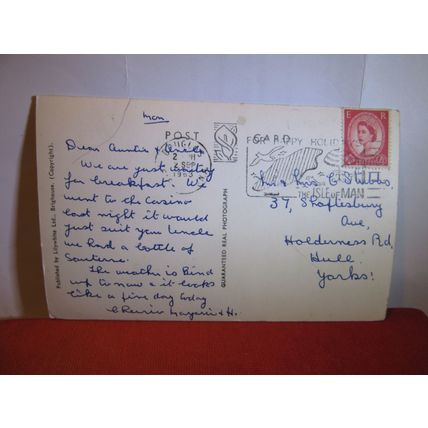 Man
POST CARD
DOUGLAS
2 SEP
1963
FOR HAPPY HOLIDAYS
THE ISLE OF MAN
E R
Dear Auntie & Uncle
We are just waiting
for breakfast. We
went to the Casino
last night it would
just suit you Uncle
we had a bottle of
Sauterne.
The weather is kind
up to now & it looks
like a fine day today
& H.
Mr & Mrs C
37, Shaftesbury
Ave,
Holderness Rd,
Hull.
Yorks!
Published by Lilywhite Ltd., Brighouse. (Copyright).
GUARANTEED REAL PHOTOGRAPH